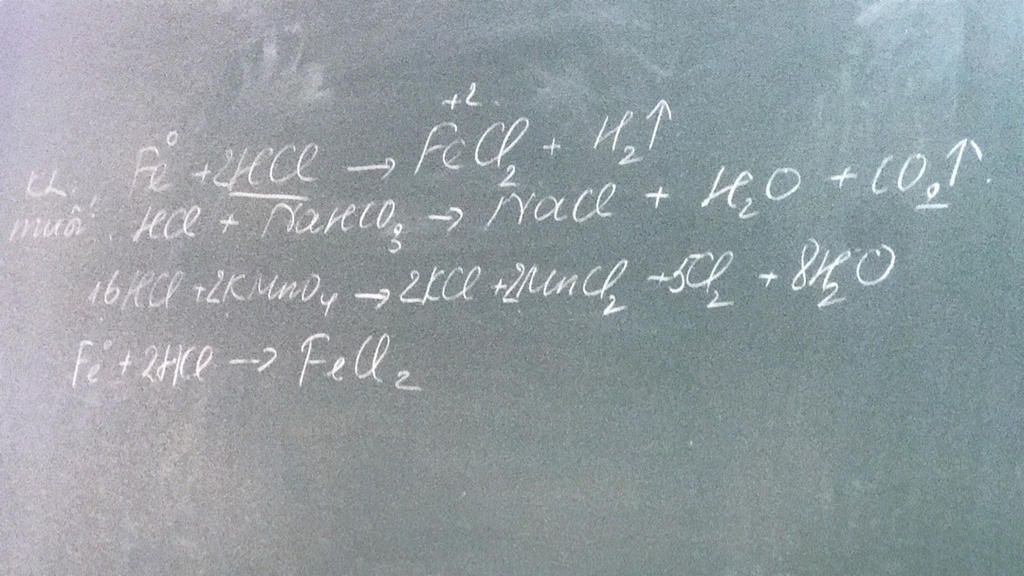 KL: Fe⁰ + 2HCl → Fe⁺²Cl₂ + H₂↑
muối: HCl + NaHCO₃ → NaCl + H₂O + CO₂↑.
16HCl + 2KMnO₄ → 2KCl + 2MnCl₂ + 5Cl₂ + 8H₂O
Fe⁰ + 2HCl → FeCl₂